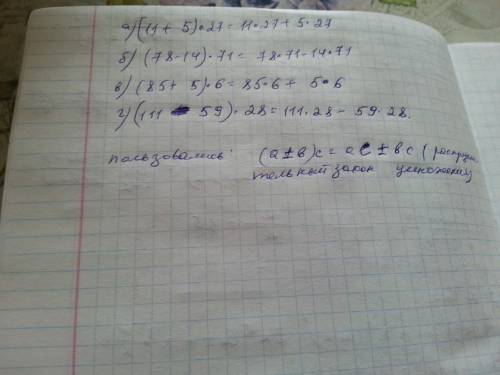 а) (11 + 5)·27 = 11·27 + 5·27
б) (78-14)·71 = 78·71-14·71
в) (85+ 5)·6 = 85·6 + 5·6
г) (111 - 59)·28 = 111·28 - 59·28.
пользовались: (a±b)c = ac ± bc (распреде
тельный закон умножения)